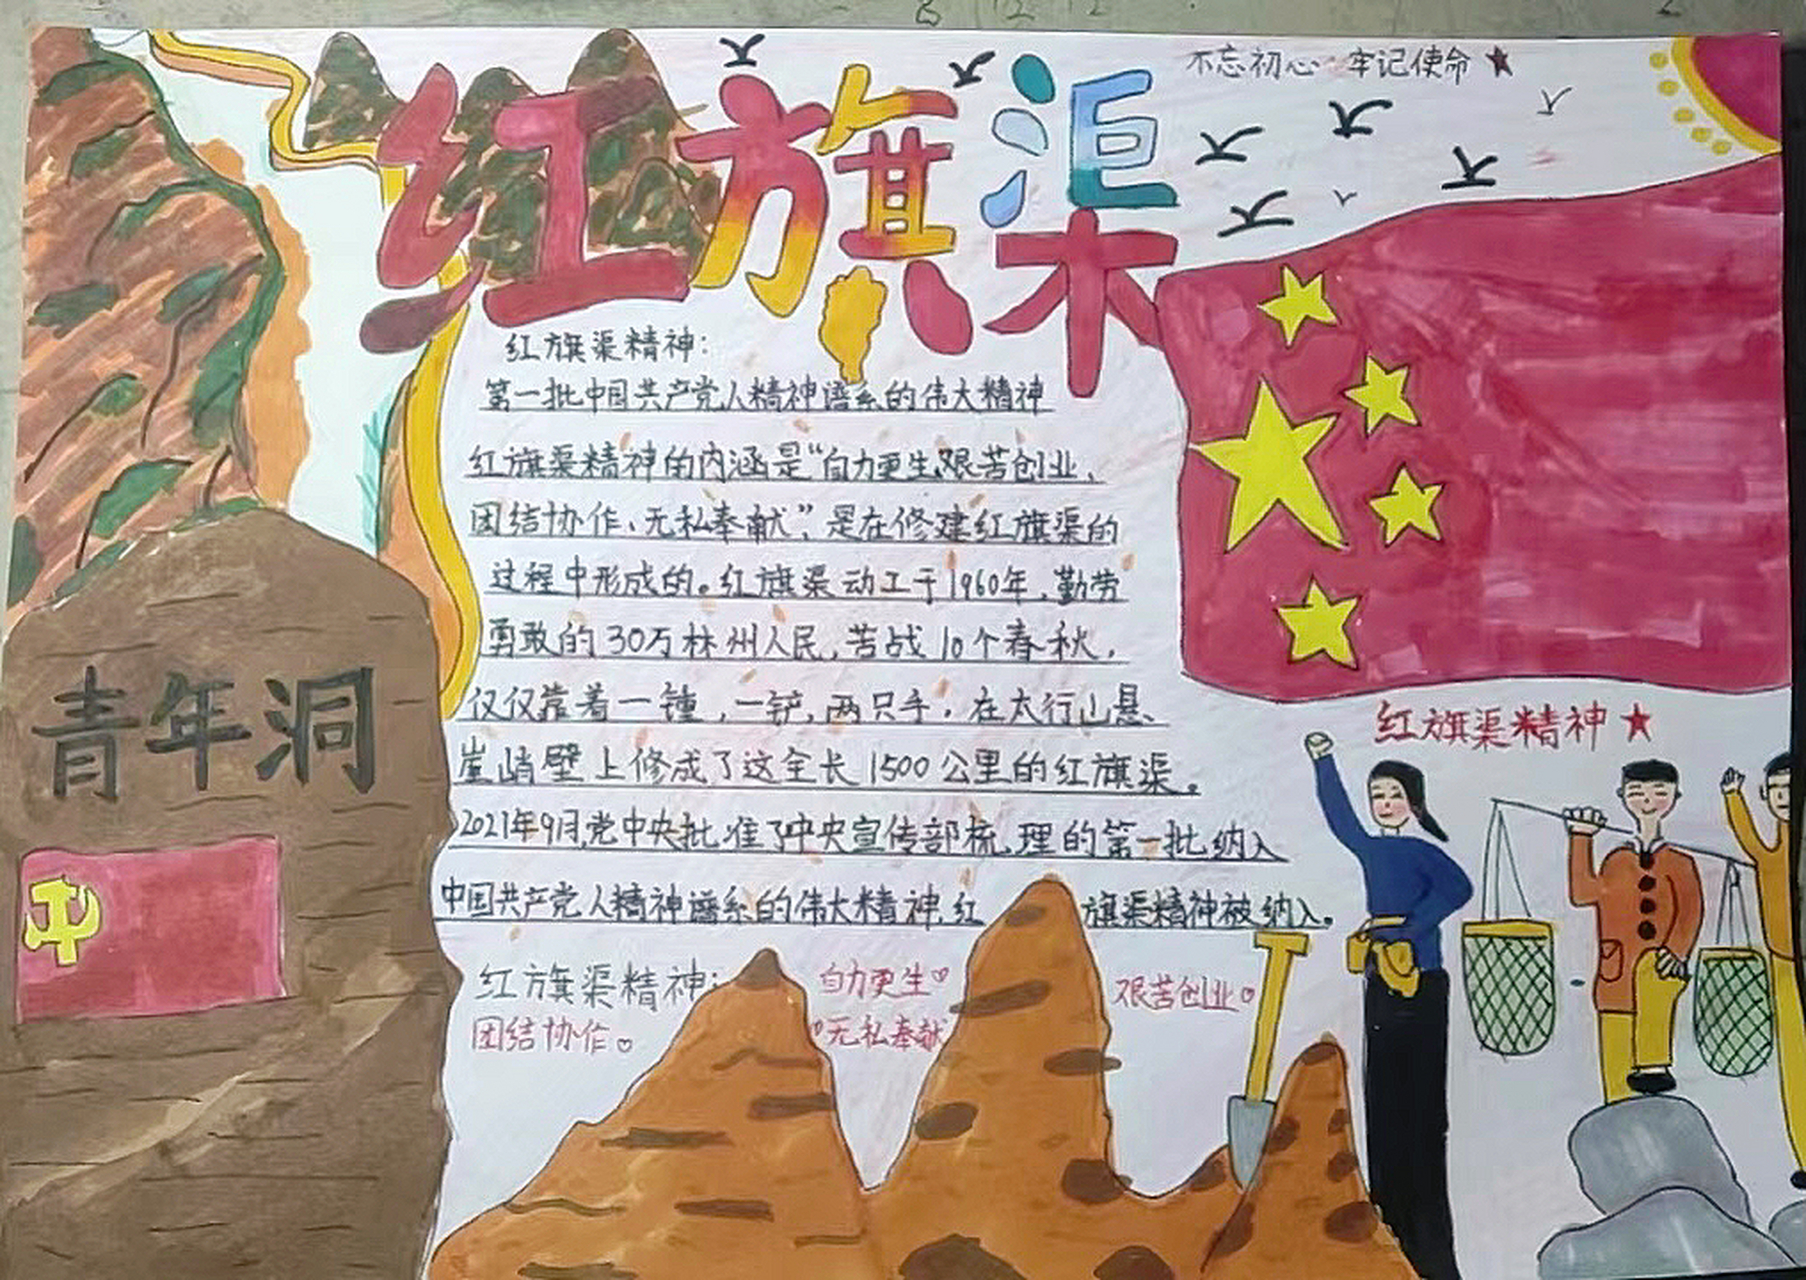 不忘初心 牢记使命
红旗渠
红旗渠精神:
第一批中国共产党人精神谱系的伟大精神
红旗渠精神的内涵是“自力更生、艰苦创业、
团结协作、无私奉献”,是在修建红旗渠的
过程中形成的。红旗渠动工于1960年,勤劳
勇敢的30万林州人民,苦战10个春秋,
仅仅靠着一锺,一铲,两只手,在太行山悬
崖峭壁上修成了这全长1500公里的红旗渠。
2021年9月,党中央批准了中央宣传部梳理的第一批纳入
中国共产党人精神谱系的伟大精神,红旗渠精神被纳入。
红旗渠精神:
自力更生
艰苦创业
团结协作
无私奉献
青年洞
红旗渠精神